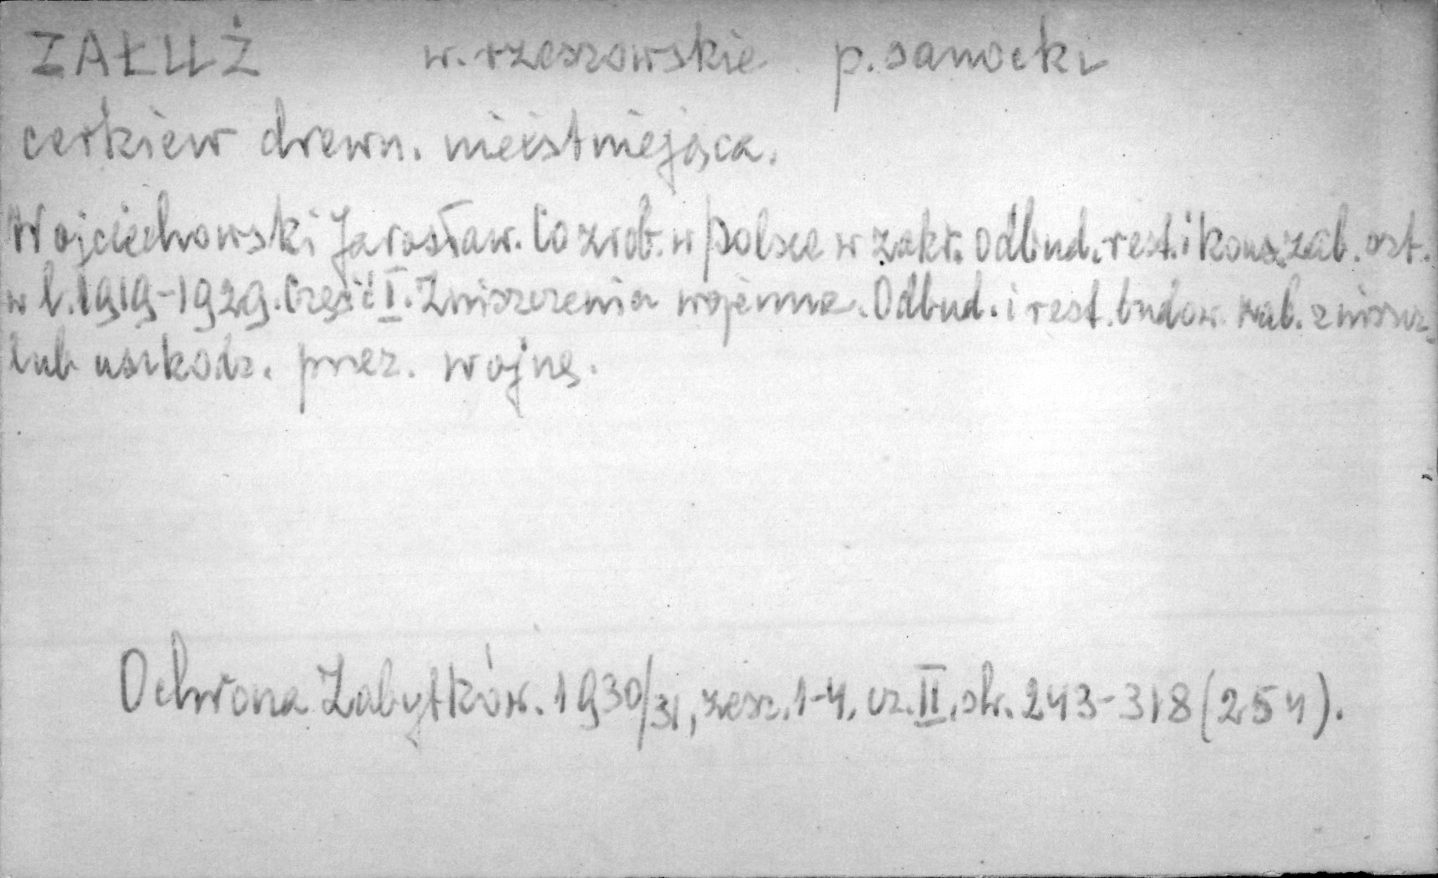 ZAŁUŻ w. rzeszowskie p. sanocki
cerkiew drewn. nieistniejąca.
Wojciechowski Jarosław. Co zrob. w Polsce w zakr. odbud. rest. i kons. zab. ost.
w l. 1919-1929. Część I. Zniszczenia wojenne. Odbud. i rest. budow. zab. zniszcz.
lub uszkodz. przez. wojnę.
Ochrona Zabytków. 1930/31, zesz. 1-4, cz. II, str. 243-318 (254).